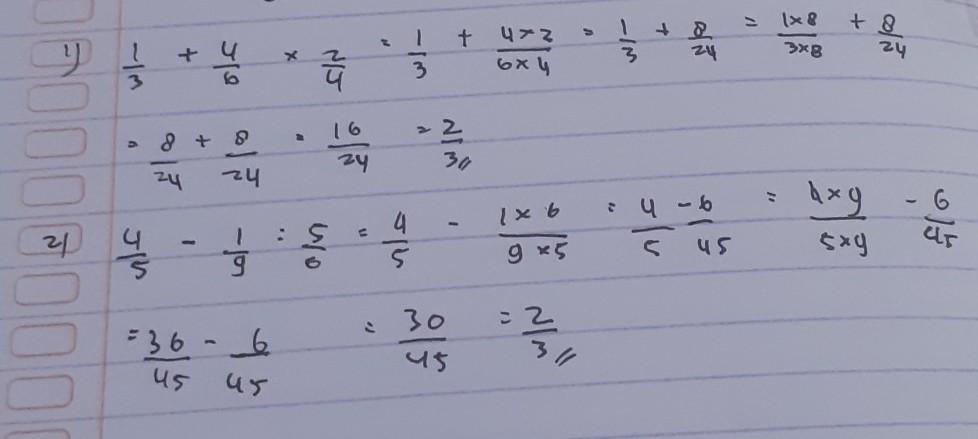 1) 1/3 + 4/6 × 2/4 = 1/3 + 4×2/6×4 = 1/3 + 8/24 = 1×8/3×8 + 8/24
= 8/24 + 8/24 = 16/24 = 2/3 //
2) 4/5 - 1/9 : 5/6 = 4/5 - 1×6/9×5 = 4/5 - 6/45 = 4×9/5×9 - 6/45
= 36/45 - 6/45 = 30/45 = 2/3 //